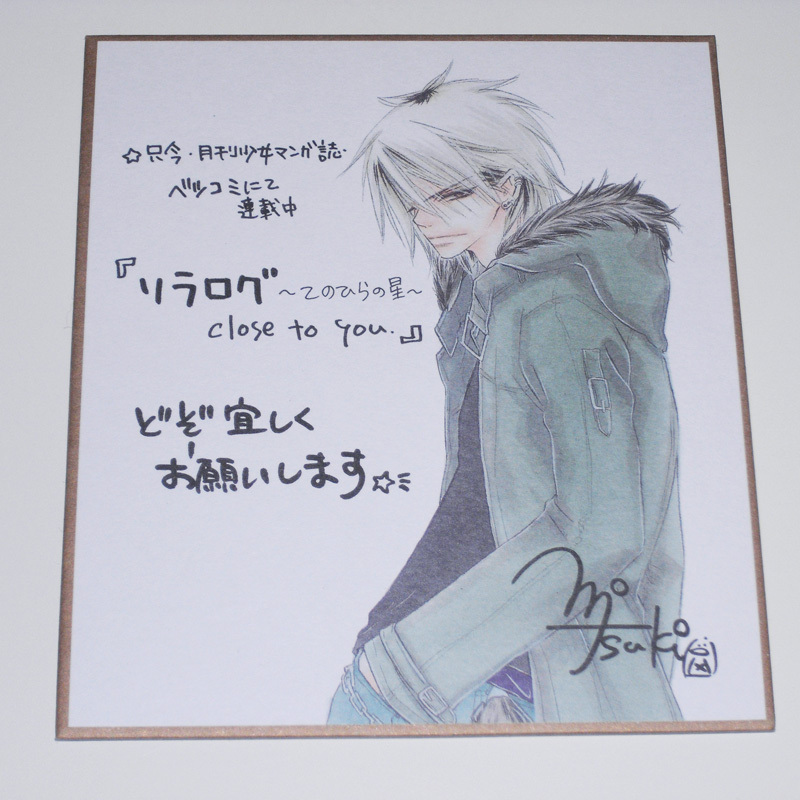 ☆只今・月刊少女マンガ誌・
ベツコミにて
連載中
『リラログ～てのひらの星～
close to you.』
どぞ宜しく
お願いします☆
Mitsuki